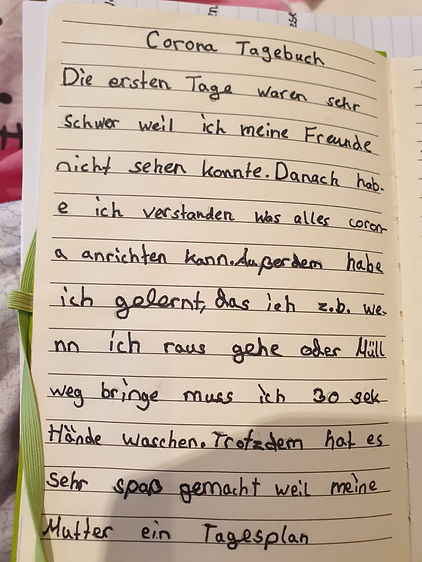 Corona Tagebuch
Die ersten Tage waren sehr
schwer weil ich meine Freunde
nicht sehen konnte. Danach hab-
e ich verstanden was alles coron-
a anrichten kann. Außerdem habe
ich gelernt, das ich z.b. we-
nn ich raus gehe oder Müll
weg bringe muss ich 30 sek
Hände waschen. Trotzdem hat es
sehr spaß gemacht weil meine
Mutter ein Tagesplan